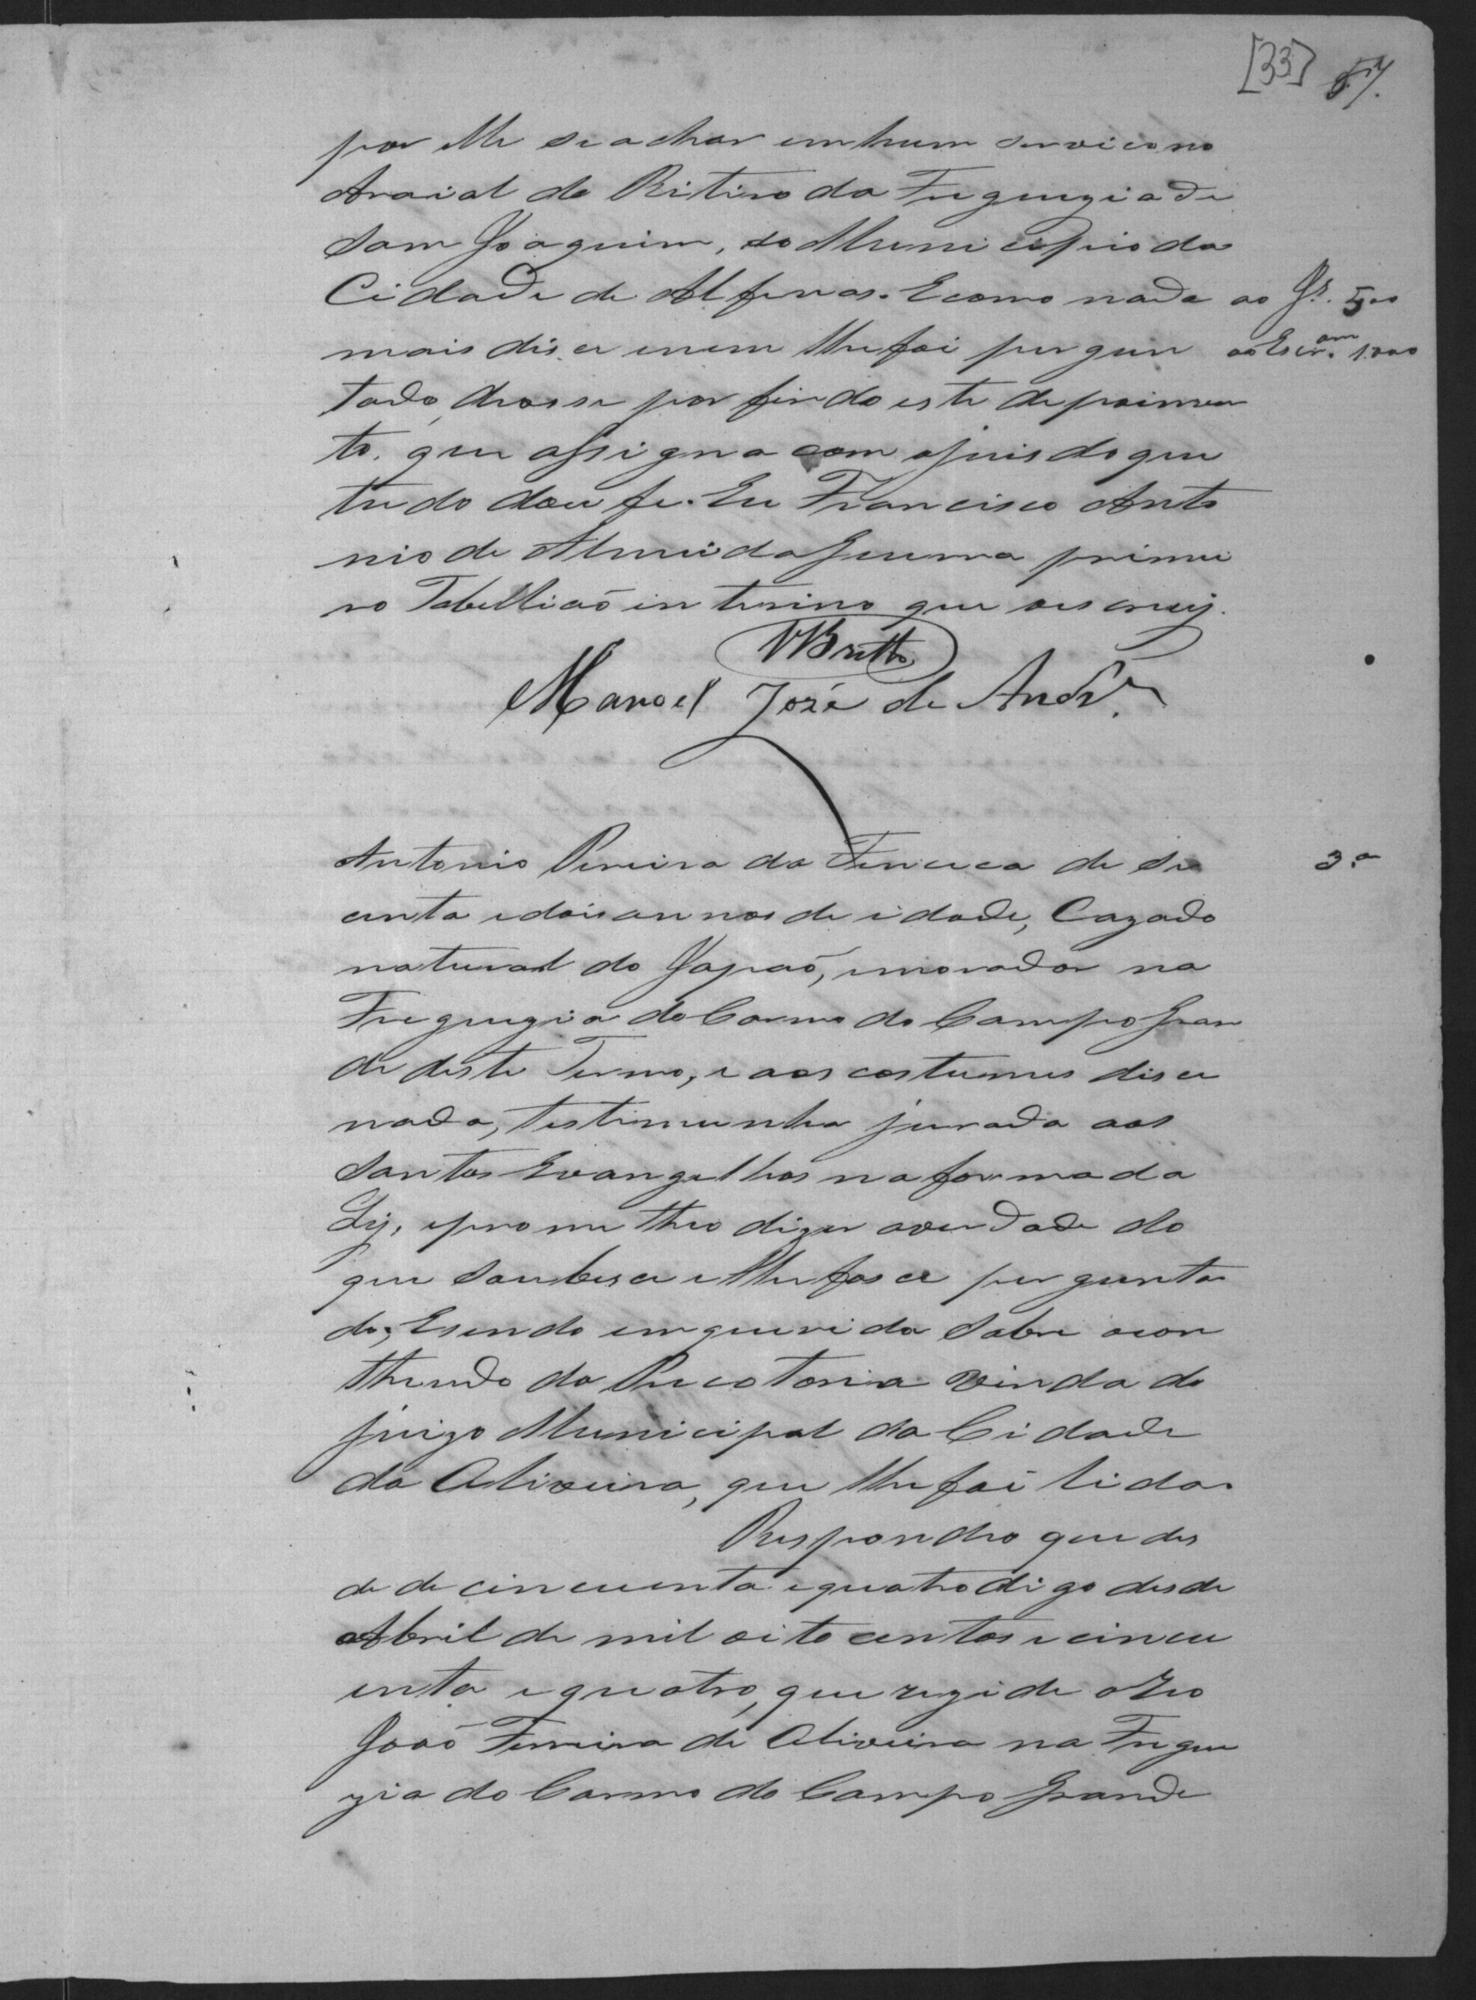 [33] 57.
por elle se achar em hum servico no
Araial do Ritiro da Freguezia de
Sam Joaquim, do Municipio da
Cidade de Alfenas. E como nada
ao Js. 500
mais dise e nem lhe foi pergun
ao Escram. 1.000
tado, deosse por findo este depoimen
to, que assigna com o juis do que
tudo dou fe. Eu Francisco Anto
nio de Almeida Guerra primei
ro Tabellião interino que o escrevy.
VBritto
Manoel José de Andr.e
Antonio Pereira da Fonceca de se
3.a
centa e dois annos de idade, Cazado
natural do Japaõ, e morador na
Freguezia do Carmo do Campo Gran
de deste Termo, e aos costumes dise
nada, testimunha jurada aos
Santos Evangelhos na forma da
Ley, e prometheo dizer a verdade do
que soubese e lhe fose pergunta
do; E sendo emquerida sobre o con
theudo da Precatoria vinda do
juizo Municipal da Cidade
da Oliveira, que lhe foi lida.
Respondeo que des
de de cincuenta e quatro digo desde
Abril de mil oito centos e cincu
enta e quatro, que rezide o Reo
Joaõ Ferreira de Oliveira na Fregue
zia do Carmo do Campo Grande